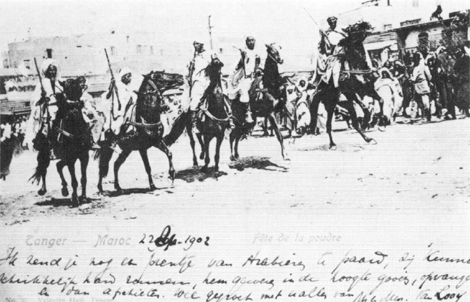 Tanger — Maroc 22 Sep. 1902 Fête de la poudre
Ik zend je nog een prentje van Arabieren te paard, zij kunnen
verschrikkelijk hard rennen, hun geweer in de hoogte gooien, opvangen
en dan afschieten. Wees gegroet met allen van